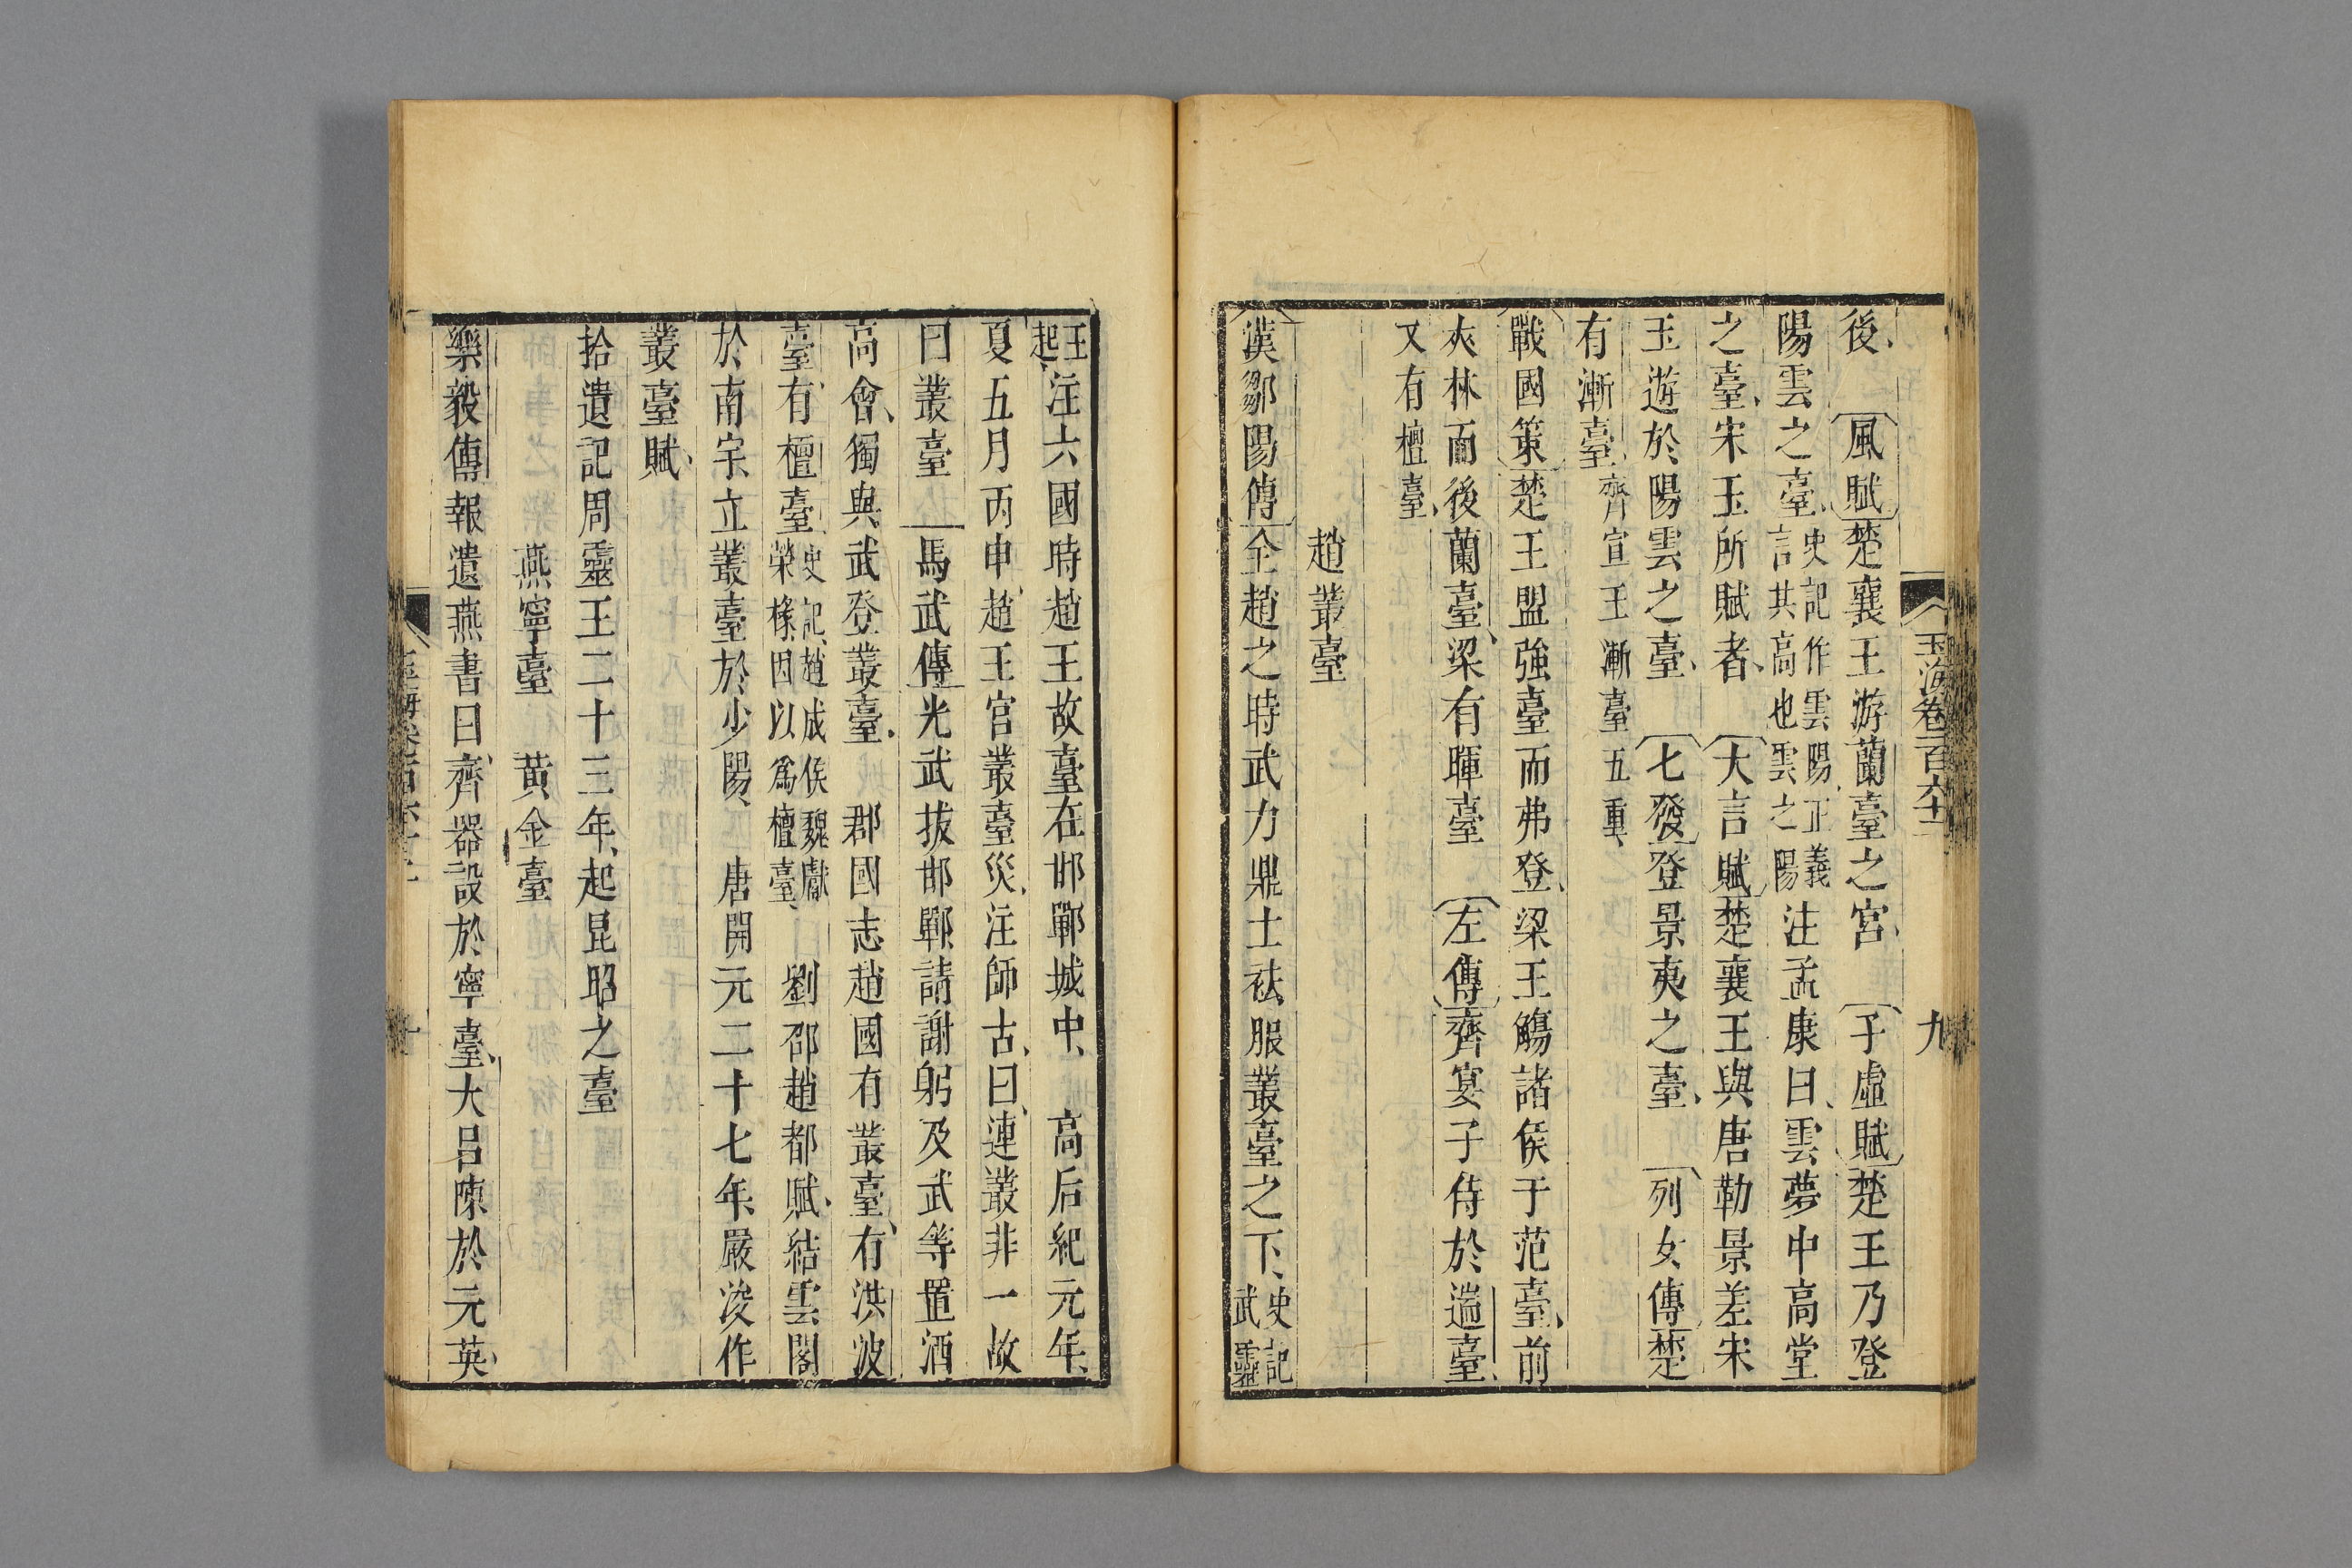 玉海卷一百六十二
九
後風賦楚襄王游蘭臺之宮子虛賦楚王乃登
陽雲之臺史記作雲陽正義言其高也雲之陽注孟康曰雲夢中高堂
之臺宋玉所賦者大言賦楚襄王與唐勒景差宋
玉遊於陽雲之臺七發登景夷之臺列女傳楚
有漸臺齊宣王漸臺五重
戰國策楚王盟強臺而弗登梁王觴諸侯于范臺前
夾林而後蘭臺梁有暉臺左傳齊宴子侍於遄臺
又有檀臺
趙叢臺
漢鄒陽傳全趙之時武力鼎士袨服叢臺之下史記武靈
王起注六國時趙王故臺在邯鄲城中高后紀元年
夏五月丙申趙王宮叢臺災注師古曰連叢非一故
曰叢臺馬武傳光武拔邯鄲請謝躬及武等置酒
高會獨與武登叢臺郡國志趙國有叢臺有洪波
臺有檀臺史記趙成侯魏獻榮椽因以為檀臺劉邵趙都賦結雲閣
於南宇立叢臺於少陽唐開元二十七年嚴浚作
叢臺賦
拾遺記周靈王二十三年起昆昭之臺
燕寧臺 黃金臺
樂毅傳報遺燕書曰齊器設於寧臺大呂陳於元英